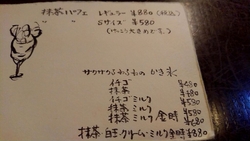 抹茶パフェ レギュラー ¥880(税込)
Sサイズ ¥580
(けっこう大きめです。)
サクサクふわふわの かき氷
イチゴ ¥480
抹茶 ¥480
イチゴ ミルク ¥580
抹茶 ミルク ¥580
抹茶 ミルク 金時 ¥680
抹茶 白玉 クリーム・ミルク金時 ¥880